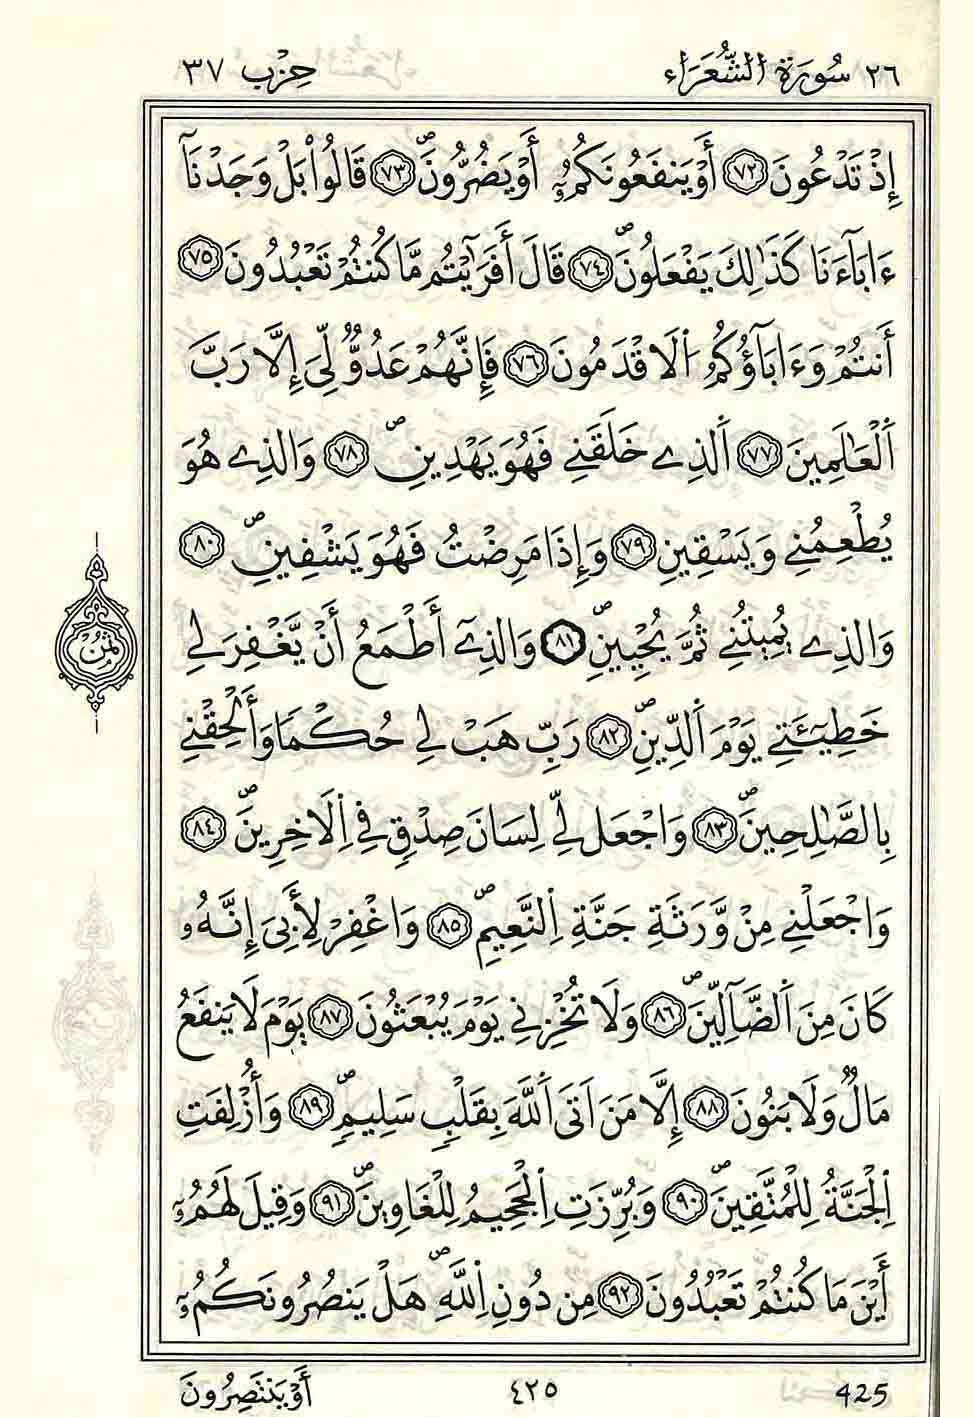 ٢٦ سُورَةُ الشُّعَرَاء حِزْب ٣٧
إِذْ تَدْعُونَ ٧٢ أَوْ يَنفَعُونَكُمُۥٓ أَوْ يَضُرُّونَۖ ٧٣ قَالُواْ بَلْ وَجَدْنَآ
ءَابَآءَنَا كَذَٰلِكَ يَفْعَلُونَۖ ٧٤ قَالَ أَفَرَٰٓيْتُم مَّا كُنتُمْ تَعْبُدُونَ ٧٥
أَنتُمْ وَءَابَآؤُكُمُ اُ۬لَاقْدَمُونَ ٧٦ فَإِنَّهُمْ عَدُوٌّ لِّيَ إِلَّا رَبَّ
اَ۬لْعَٰلَمِينَ ٧٧ اَ۬لذِے خَلَقَنِے فَهُوَ يَهْدِينِۖ ٧٨ وَالذِے هُوَ
يُطْعِمُنِے وَيَسْقِينِ ٧٩ وَإِذَا مَرِضْتُ فَهُوَ يَشْفِينِۖ ٨٠
وَالذِے يُمِيتُنِے ثُمَّ يُحْيِينِۖ ٨١ وَالذِےٓ أَطْمَعُ أَنْ يَّغْفِرَ لِے
ثمن
خَطِيٓـَٔتِے يَوْمَ اَ۬لدِّينِۖ ٨٢ رَبِّ هَبْ لِے حُكْماً وَأَلْحِقْنِے
بِالصَّٰلِحِينَۖ ٨٣ وَاجْعَل لِّے لِسَانَ صِدْقٖ فِے اِ۬لَاخِرِينَۖ ٨٤
وَاجْعَلْنِے مِنْ وَّرَثَةِ جَنَّةِ اِ۬لنَّعِيمِۖ ٨٥ وَاغْفِرْ لِأَبِيَ إِنَّهُۥ
كَانَ مِنَ اَ۬لضَّآلِّينَۖ ٨٦ وَلَا تُخْزِنِے يَوْمَ يُبْعَثُونَ ٨٧ يَوْمَ لَا يَنفَعُ
مَالٞ وَلَا بَنُونَ ٨٨ إِلَّا مَنَ اَتَى اَ۬للَّهَ بِقَلْبٖ سَلِيمٖۖ ٨٩ وَأُزْلِفَتِ
اِ۬لْجَنَّةُ لِلْمُتَّقِينَۖ ٩٠ وَبُرِّزَتِ اِ۬لْجَحِيمُ لِلْغَاوِينَۖ ٩١ وَقِيلَ لَهُمُۥٓ
أَيْنَ مَا كُنتُمْ تَعْبُدُونَ ٩٢ مِن دُونِ اِ۬للَّهِۖ هَلْ يَنصُرُونَكُمُۥٓ
425 ٤٢٥ أَوْ يَنتَصِرُونَ